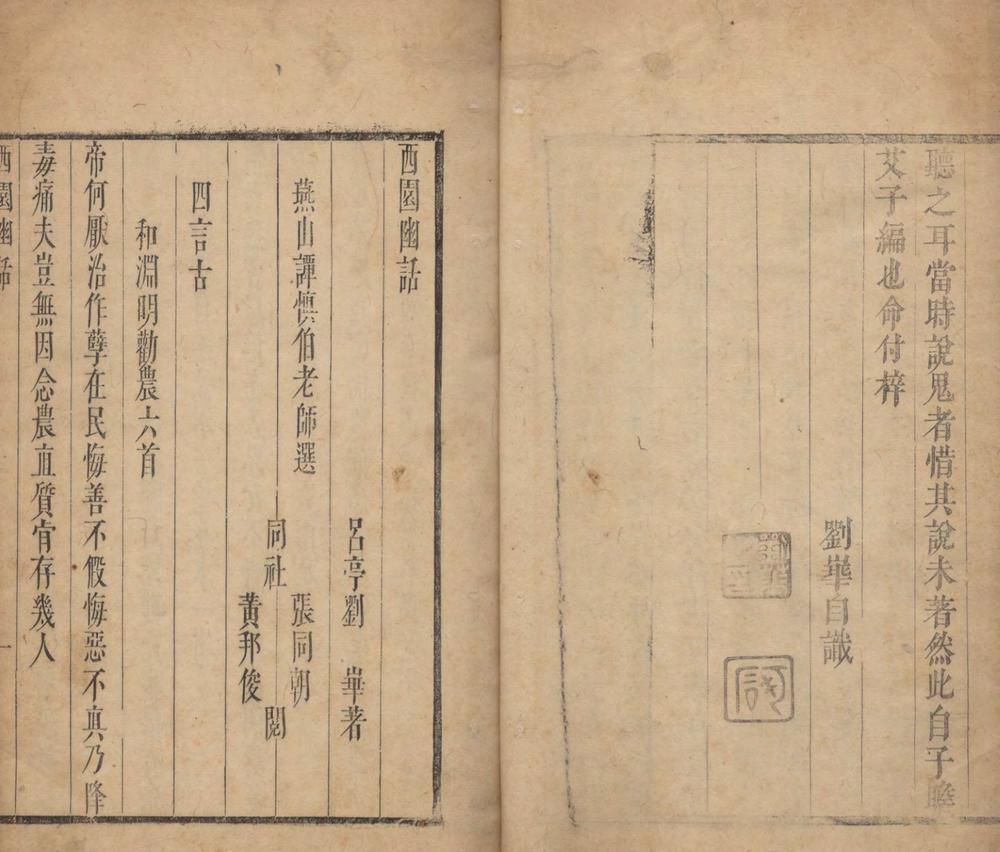 聽之耳當時說鬼者惜其說未著然此自子瞻
艾子編也命付梓
劉崋自識
西園幽話
呂亭劉　崋著
燕山譚慎伯老師選
張同朝
同社　閱
黃邦俊
四言古
和淵明勸農六首
帝何厭治作孽在民悔善不假悔惡不真乃降
毒痛夫豈無因念農直質肯存幾人
西園幽話
一